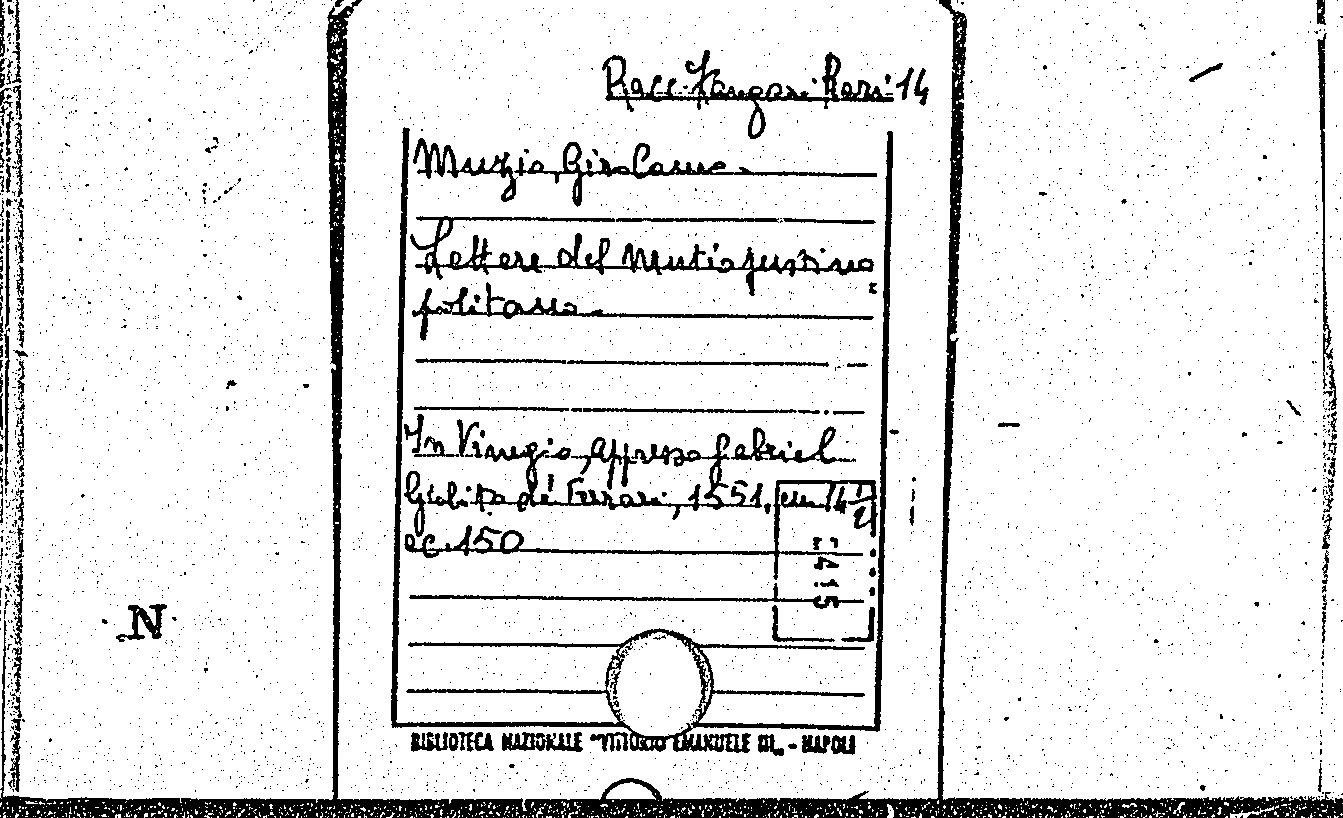 Racc. Zangari Rari 14
Muzio, Girolamo.
Lettere del Mutio justino
politano.
In Vinegia, appresso Gabriel
Giolito de' Ferrari, 1551. in 14 1/2
cc. 150
5415
N
BIBLIOTECA NAZIONALE "VITTORIO EMANUELE III„ - NAPOLI